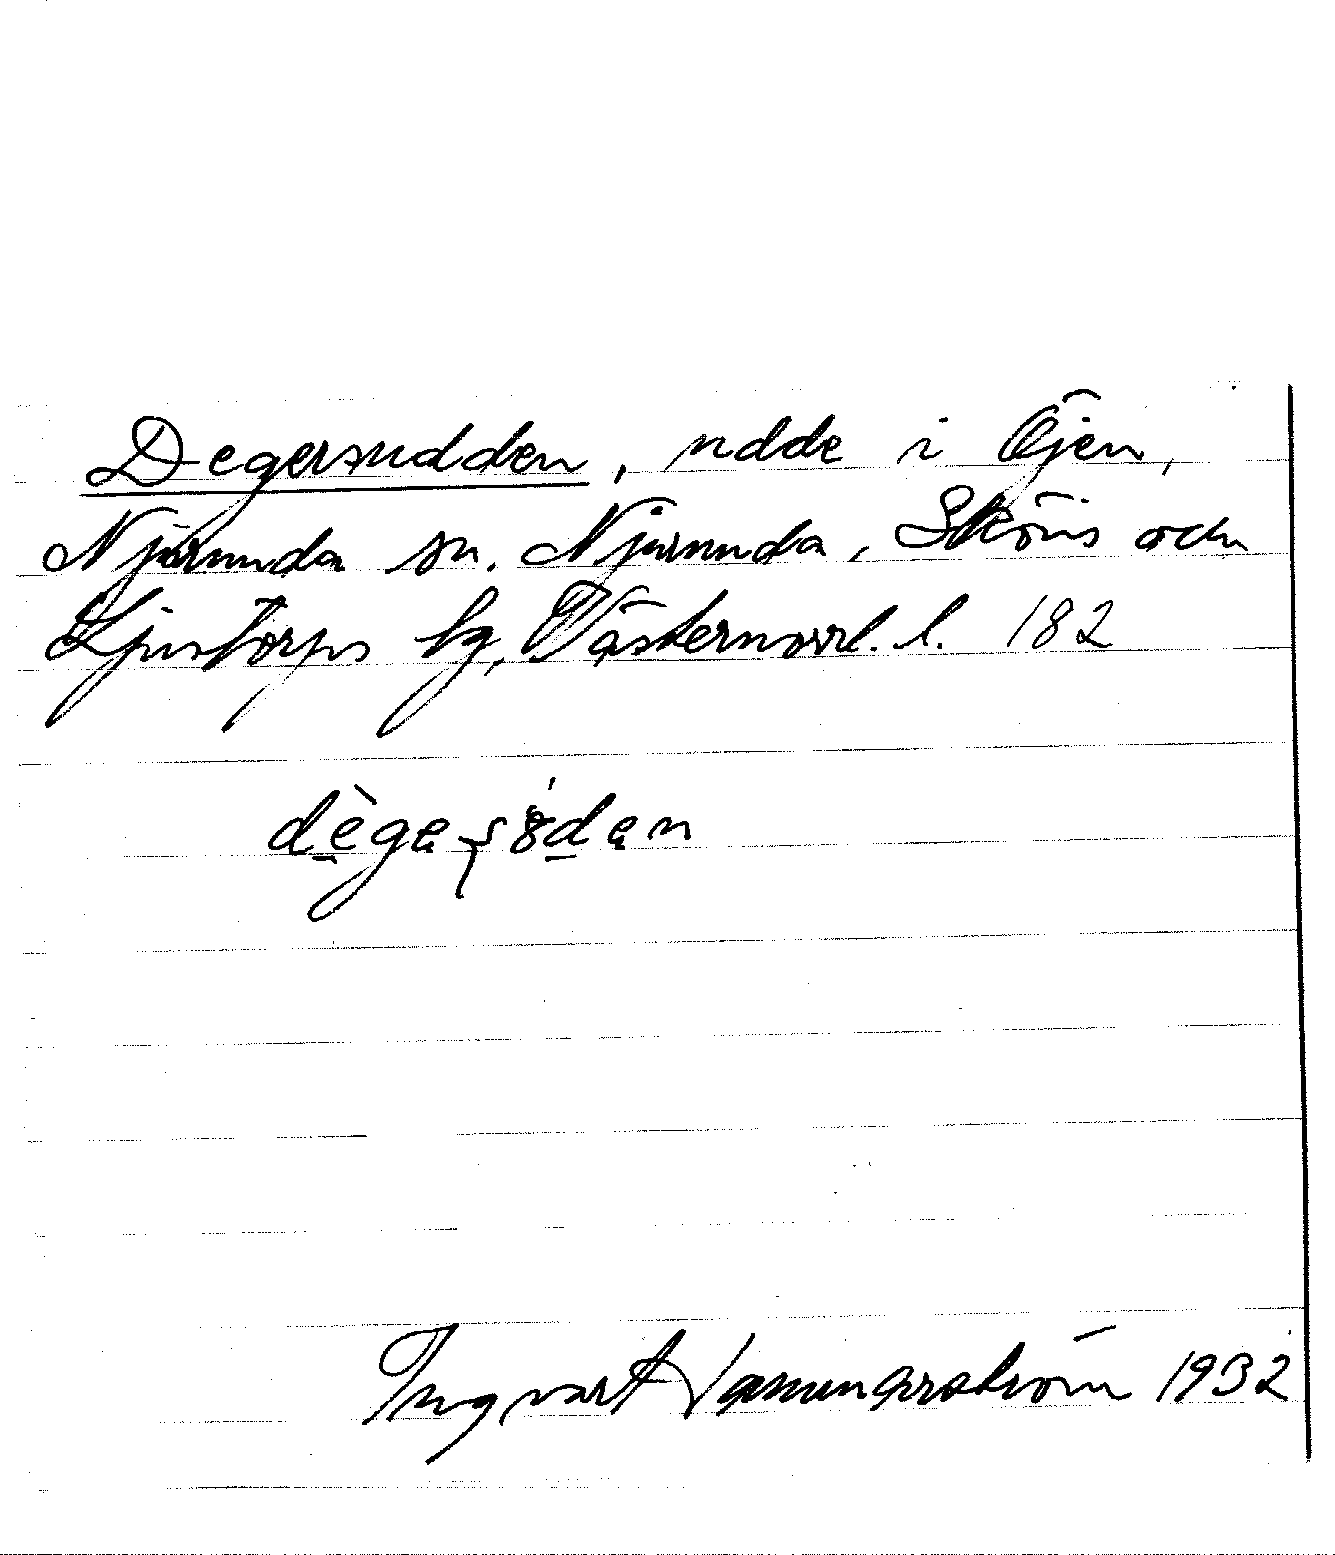 Degersudden, udde i Öjen,
Njurunda sn. Njurunda, Sköns och
Ljustorps tg, Västernorrl. l. 182
Ingvart 1932